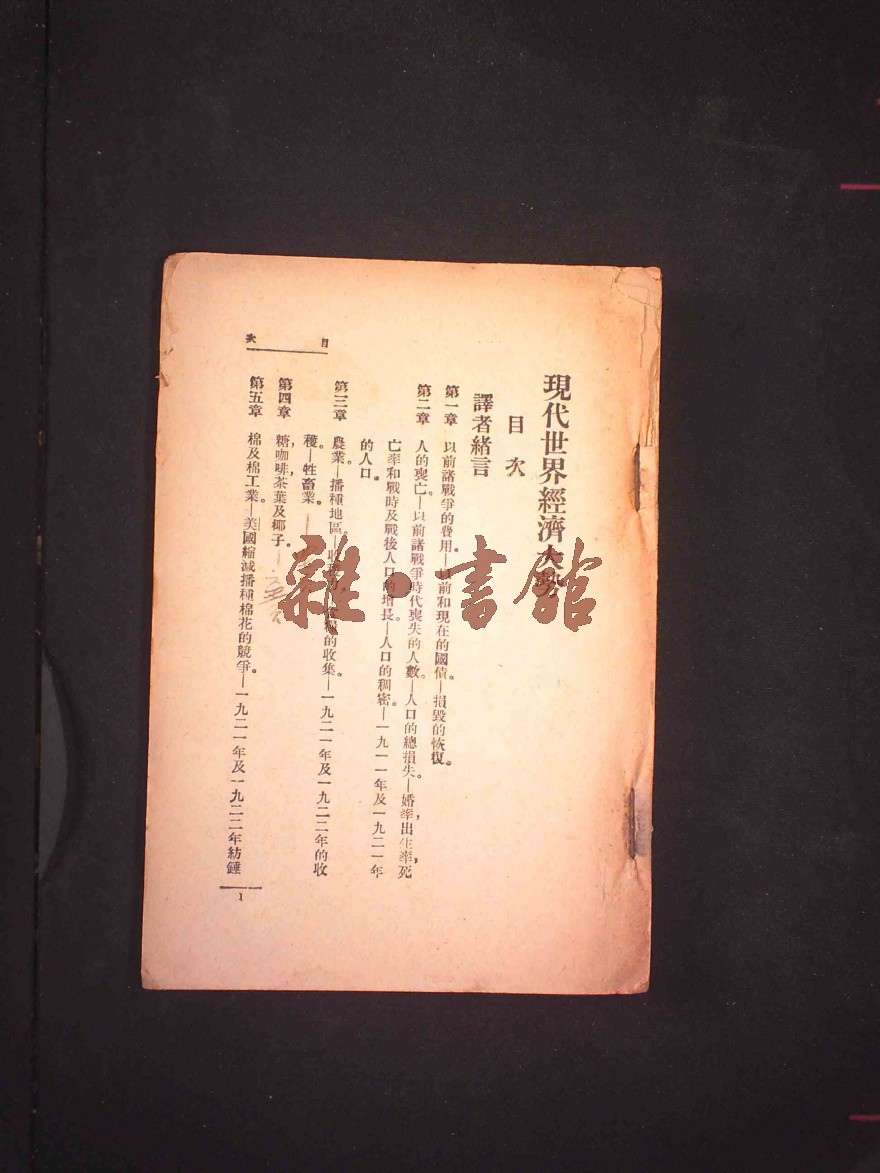 現代世界經濟大勢
目次
譯者緒言
第一章 以前諸戰爭的費用。—以前和現在的國債。—損毀的恢復。
第二章 人的喪亡。—以前諸戰爭時代喪失的人數。—人口的總損失。—婚率,出生率,死
亡率和戰時及戰後人口的增長。—人口的稠密。—一九一一年及一九二一年
的人口。
第三章 農業。—播種地區。—收 的收集。—一九二一年及一九二二年的收
穫。—牲畜業。
第四章 糖,咖啡,茶葉及椰子。
第五章 棉及棉工業。—美國縮減播種棉花的競爭。—一九二一年及一九二二年紡錘
目次
1
雜·書館